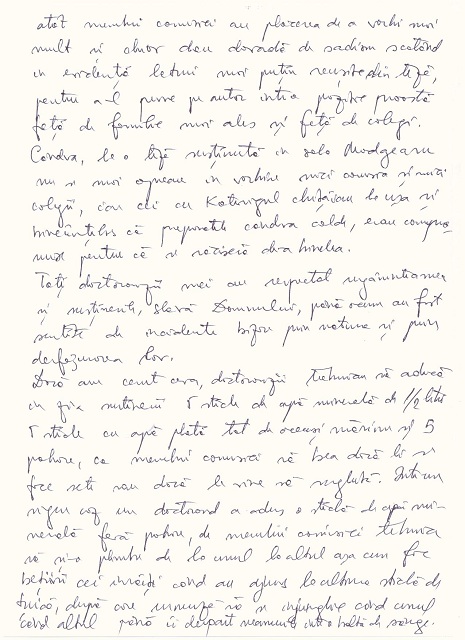 atât membrii comisiei au plăcerea de a vorbi mai
mult și chiar dau dovadă de sadism scotând
în evidență lucruri mai puțin reușite din teză,
pentru a-l pune pe autor într-o poziție proastă
față de familie mai ales și față de colegi.
Cândva, la o teză susținută în sala Moldgeanu
nu se mai opreau in vorbire nici comisia și nici
colegii, iar cei cu Kateringul chițăiau la ușă și
că preparatele cândva calde, erau
pentru că se răcise de-a binelea.
Toți doctoranzii mei au respectat rugămintea mea
și susținerile, slavă Domnului, până acum au fost
scutite de incidente bizare prin natura și prin
desfășurarea lor.
Dacă am cerut ceva, doctoranzii trebuiau să aducă
în ziua susținerii 5 sticle de apă minerală de 1/2 litri
5 sticle cu apă plată tot de aceeași mărime și 5
pahare, ca membrii comisiei să bea dacă li se
face sete sau dacă le vine să sughită. Într-un
singur caz un doctorand a adus o sticlă de apă mi-
nerală fără pahare, de membrii comisiei trebuia
să și-o plimbe de la unul la altul așa cum fac
bețivii cei înrăiți când au ajuns la ultima sticlă de
țuică, după care urmează să se înjunghie când unul
când altul până îi desparte neamurile într-o baltă de sânge.